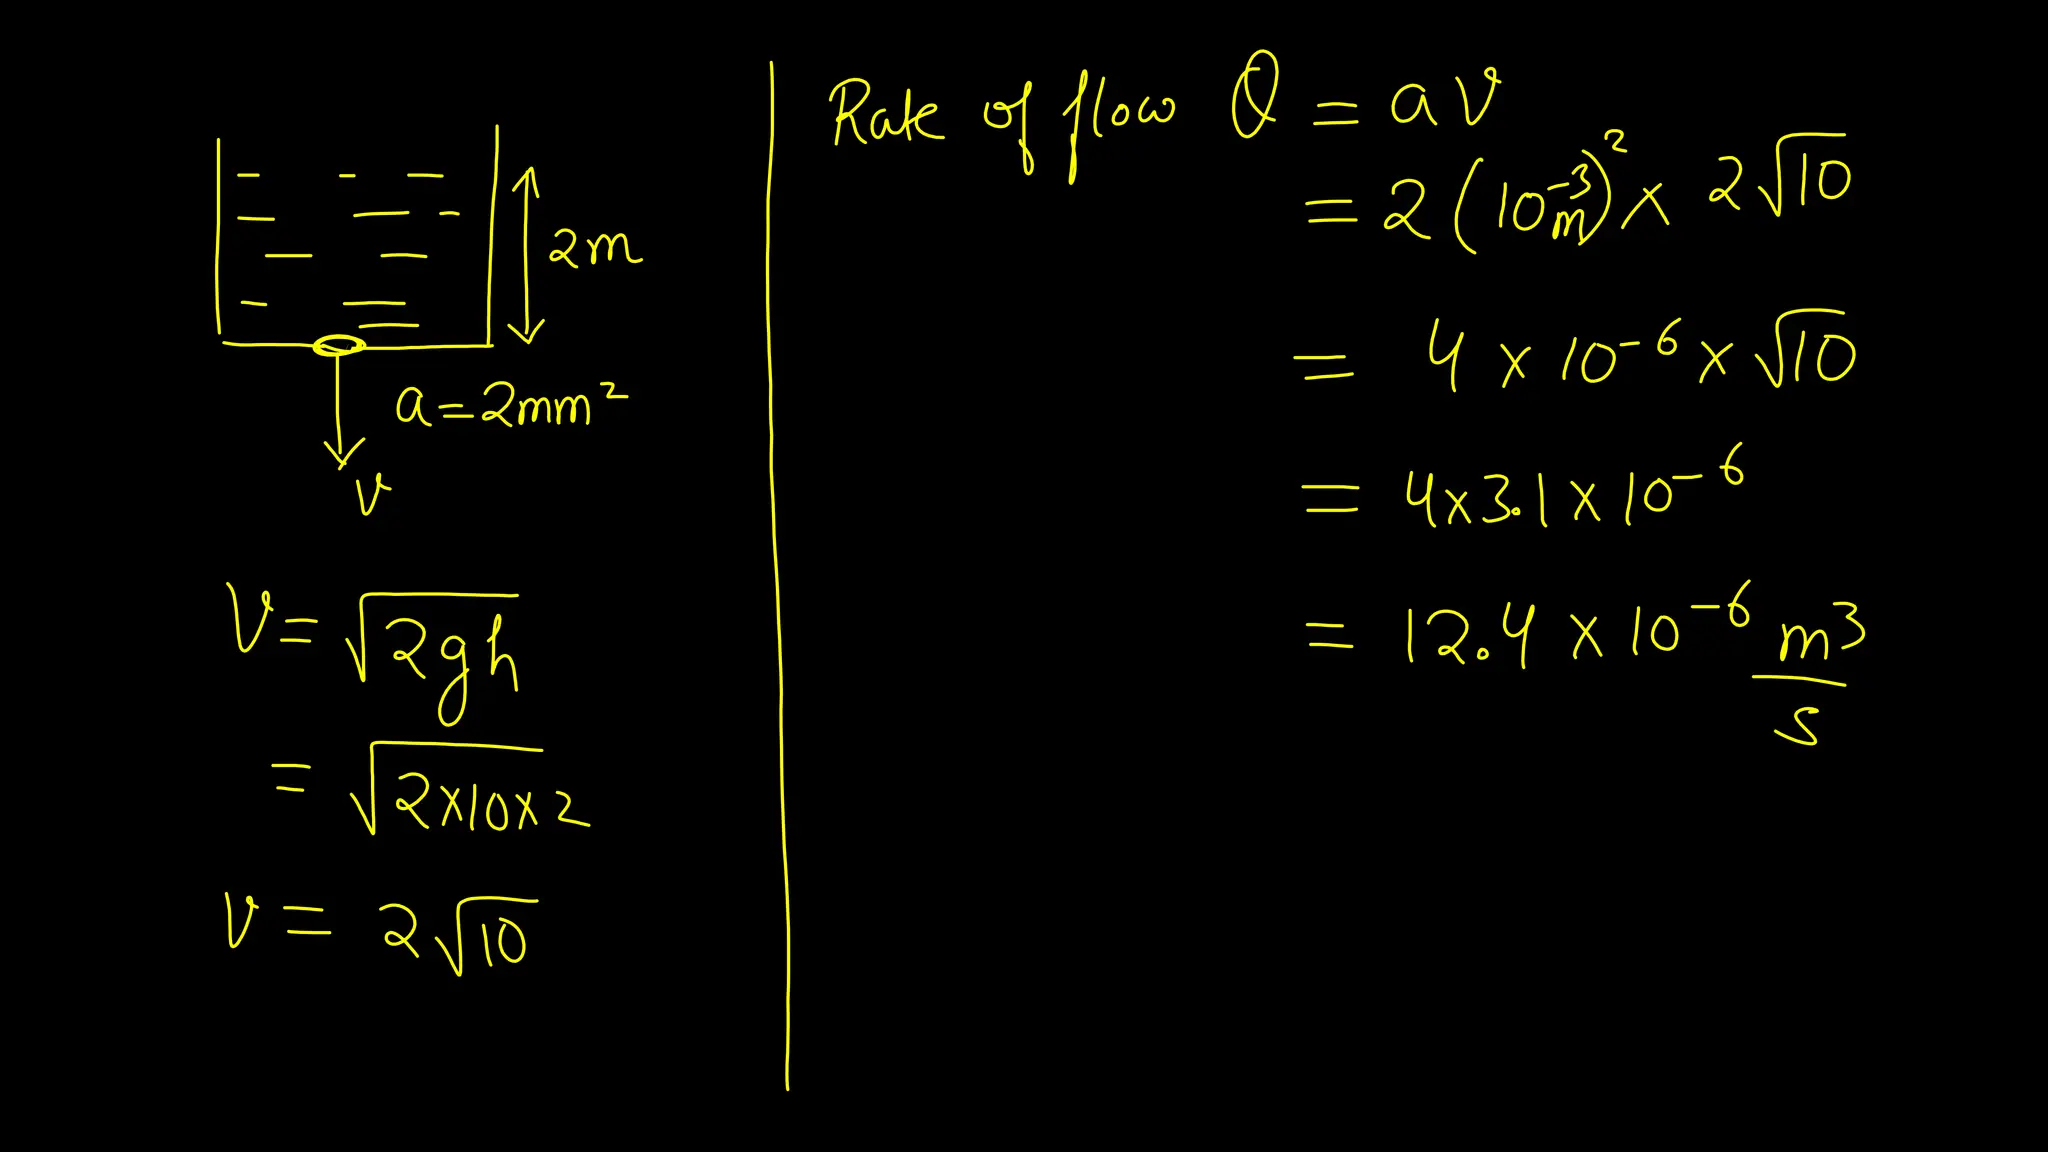 2m
a = 2mm²
v
V = √2gh
= √2×10×2
v = 2√10
Rate of flow Q = av
= 2(10⁻³m)² × 2√10
= 4 × 10⁻⁶ × √10
= 4×3.1×10⁻⁶
= 12.4 × 10⁻⁶ m³/s